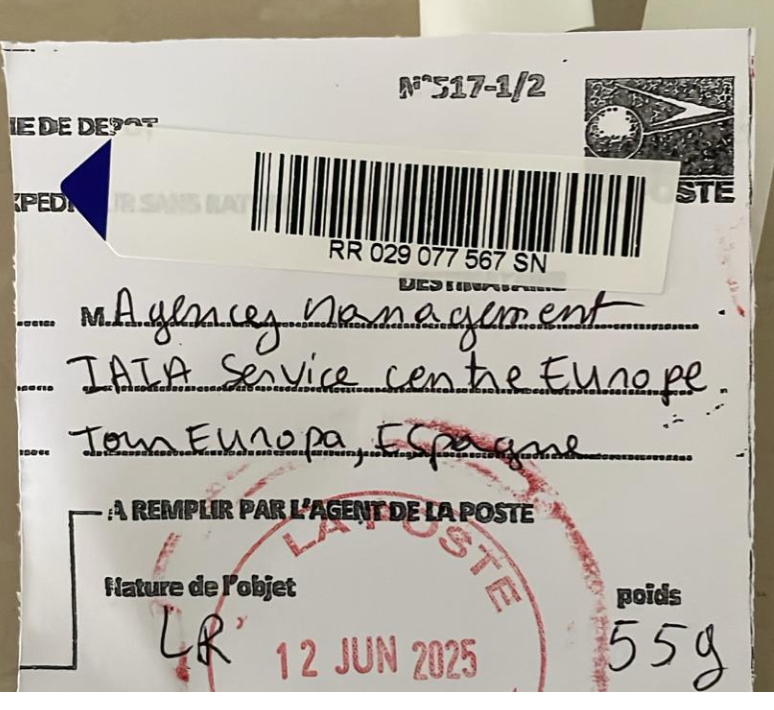 N°517-1/2
E DE DEPOT
XPEDI UR SANS RAT
STE
RR 029 077 567 SN
DESTINATAIRE
M. Agency Management
IATA Service centre Europe
Torre Europa, Espagne
A REMPLIR PAR L'AGENT DE LA POSTE
LA POSTE
Nature de l'objet
poids
LR
55g
12 JUN 2025